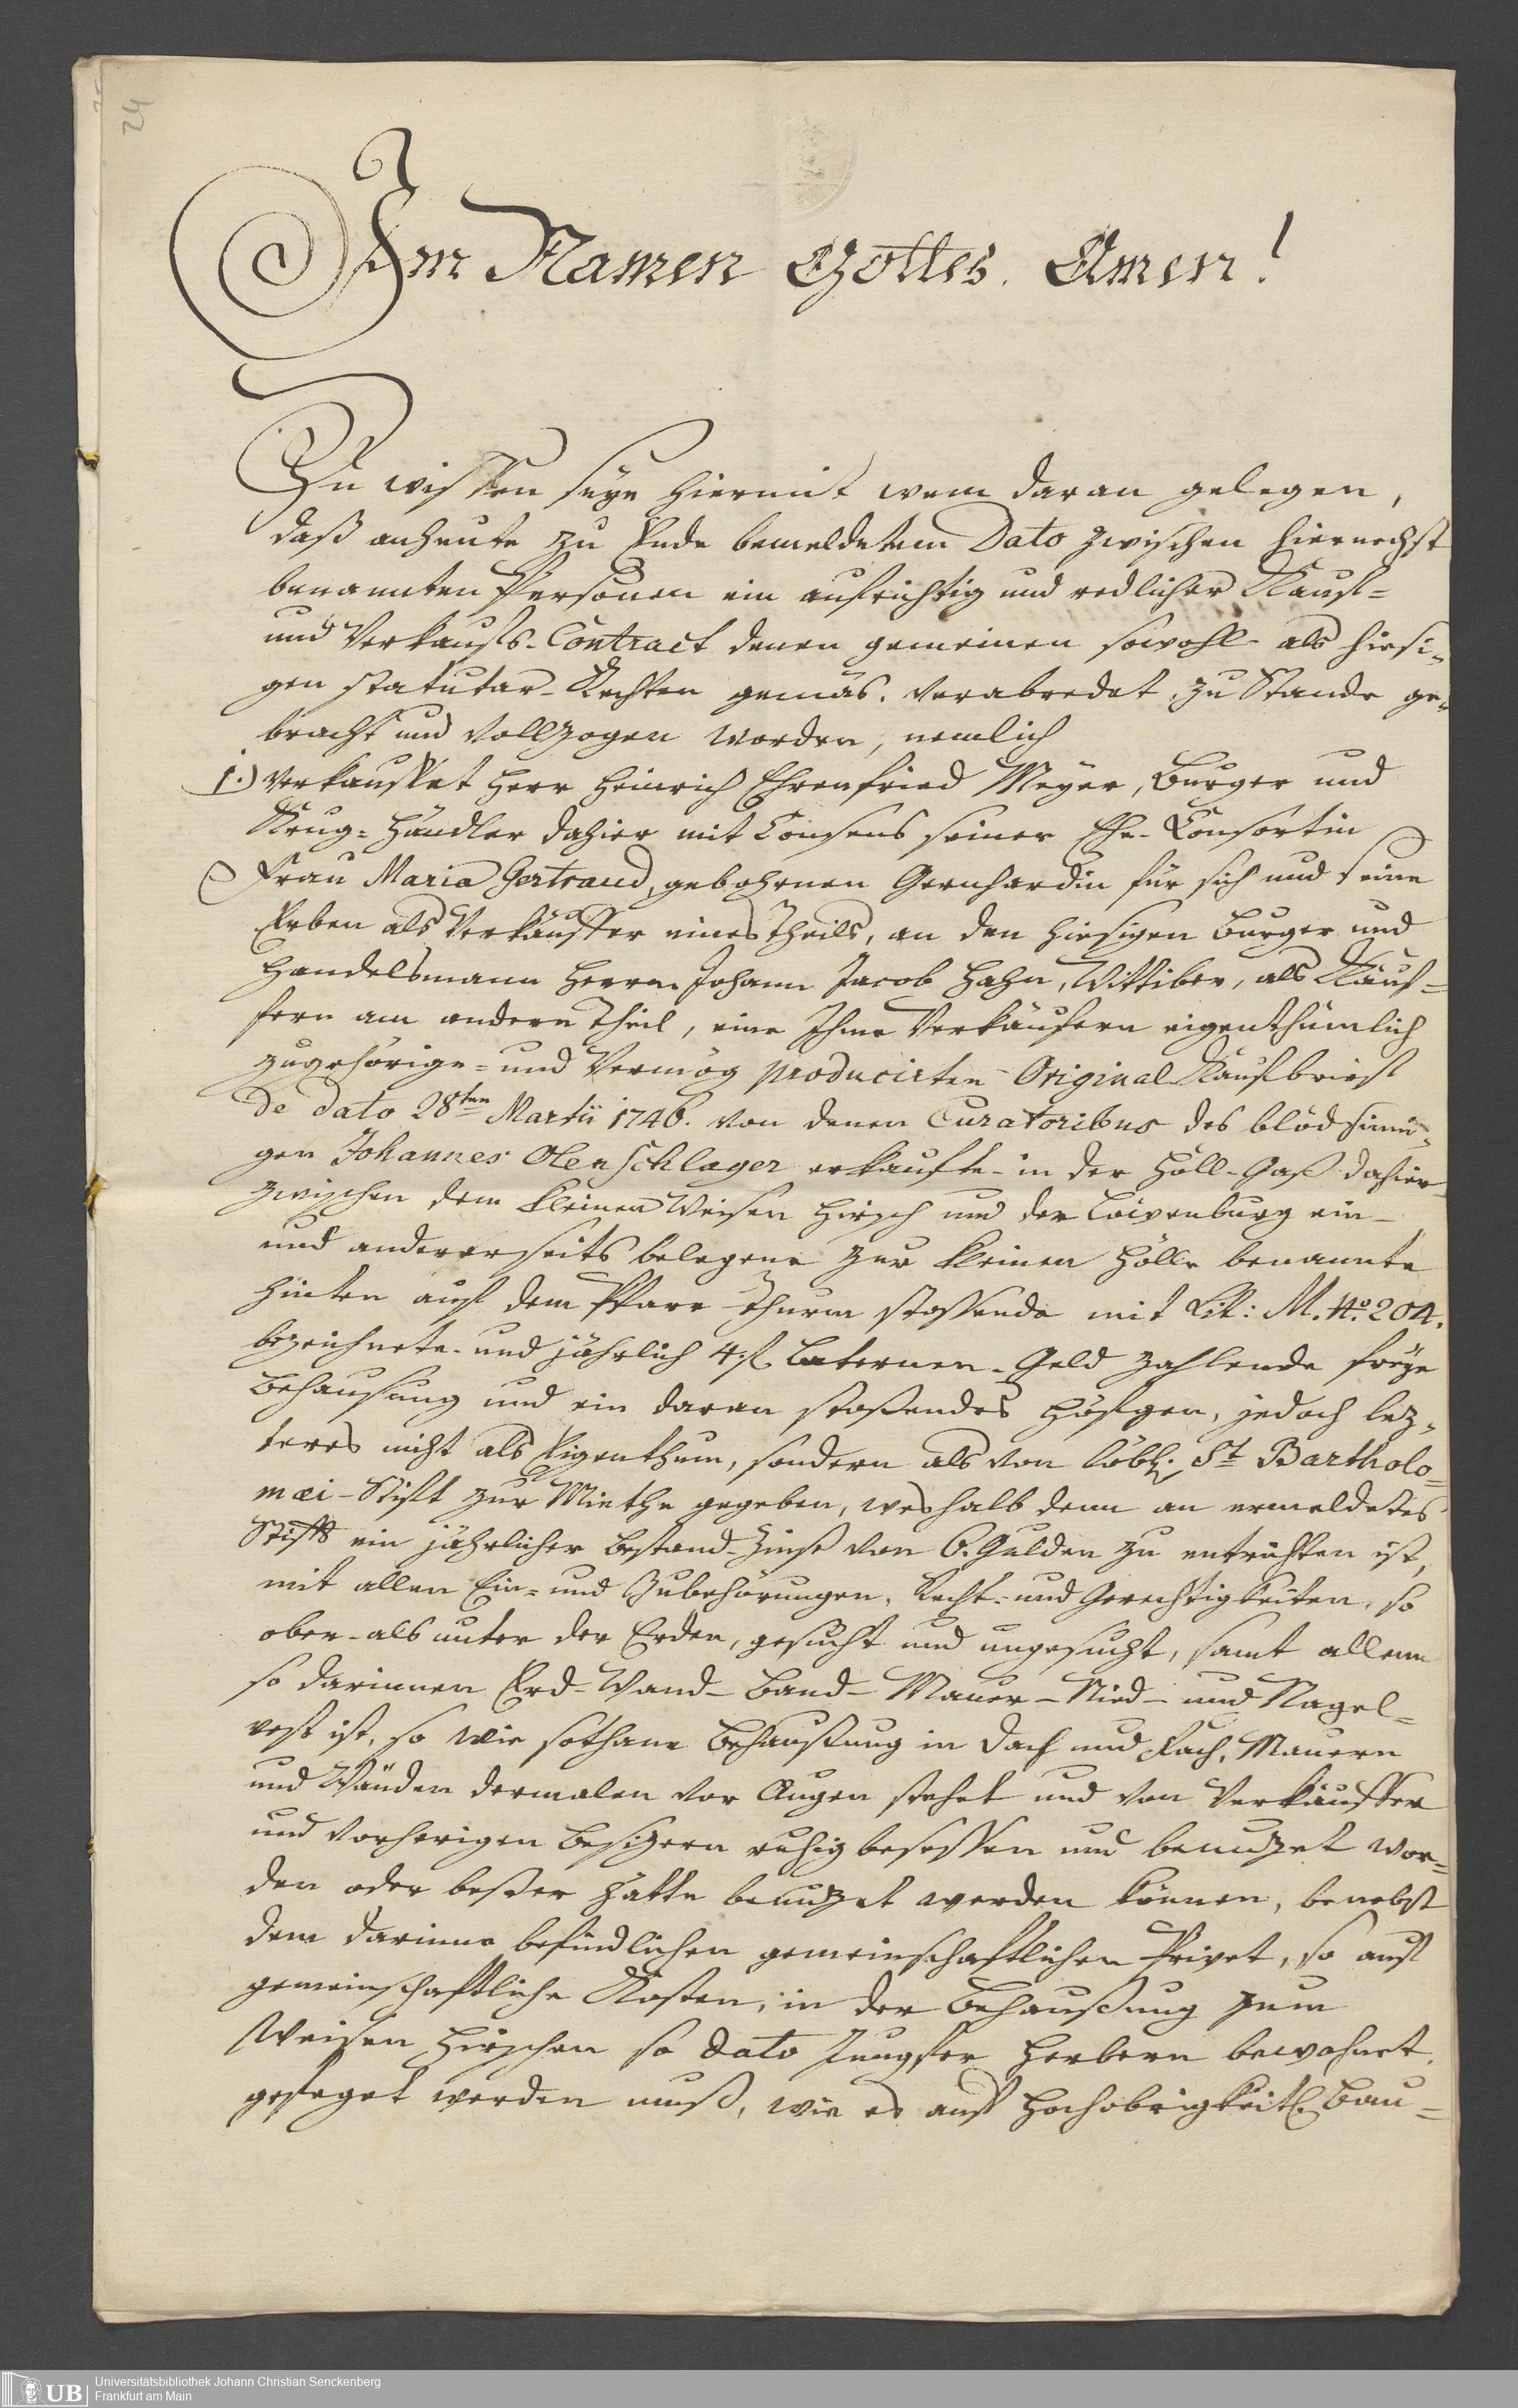 24
Im Namen Gottes. Amen!
Zu wissen seye hiermit wem daran gelegen,
daß anheute zu Ende bemeldetem Dato zwischen hiernechst
benannten Persohnen ein aufrichtig und redlicher Kauf-
und Verkaufs-Contract denen gemeinen sowohl als hiesi-
gen statutar-Rechten gemäs. verabredet, zu Stande ge-
bracht und vollzogen worden, nemlich
1.) verkauffet Herr Heinrich Ehrenfried Meyer, Burger und
Krug-Händler dahier mit Consens seiner Ehe-Consortin
Frau Maria Gertraud, gebohrnen Gernhardin für sich und seine
Erben als Verkäuffer eines Theils, an den hiesigen Burger und
Handelsmann Herrn Johann Jacob Hahn, Wittiber, als Käuf-
fern am andern Theil, eine Ihme Verkäufern eigenthümlich
zugehörige- und Vermög producirten Original Kaufbrief
de dato 28ten Martii 1746. von denen Curatoribus des blödsinni-
gen Johannes Olenschlager erkaufte- in der Höll-Gaß dahier
zwischen dem kleinen Weisen Hirsch und der Löwenburg ein-
und andererseits belegene zur kleinen Hölle benannte
hinten auf dem Pfarr-Thurm stossende mit Lit: M. No. 204.
bezeichnete- und jährlich 4 f. Laternen-Geld zahlende freye
Behausung und ein daran stoßendes Höfgen, jedoch lez-
teres nicht als Eigenthum, sondern als von löbl. St. Bartholo-
mæi-Stift zur Miethe gegeben, weshalb denn an ermeldetes
Stifft ein jährlicher Bestand-Zinß von 6. Gulden zu entrichten ist,
mit allen Ein- und Zubehörungen, Recht- und Gerechtigkeiten, so
ober- als unter der Erden, gesucht und ungesucht, samt allem
so darinnen Erd- Wand- Band- Mauer- Nied- und Nagel-
vest ist, so wie sothane Behaußung in Dach und Fach, Mauern
und Wänden dermalen vor Augen stehet und von Verkäuffer
und vorherigen Besizern ruhig besessen und benuzet wor-
den oder beßer hätte benuzet werden können, benebst
dem darinne befindlichen gemeinschaftlichen Privet, so auf
gemeinschaftliche Kosten, in der Behaußung zum
Weisen Hirschen so dato Jungfer Herbern bewohnet,
gefeget werden muß, wie es auf Hochobrigkeitl. Bau-
UB Universitätsbibliothek Johann Christian Senckenberg
Frankfurt am Main